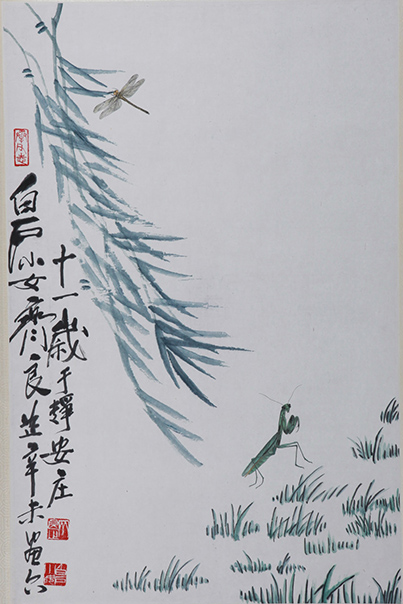 白石小女齊良芷辛未畫六
十一歲于靜安庄